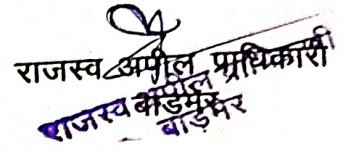 राजस्व अपील प्राधिकारी
बाडमेर
राजस्व अपील
बाड़मेर